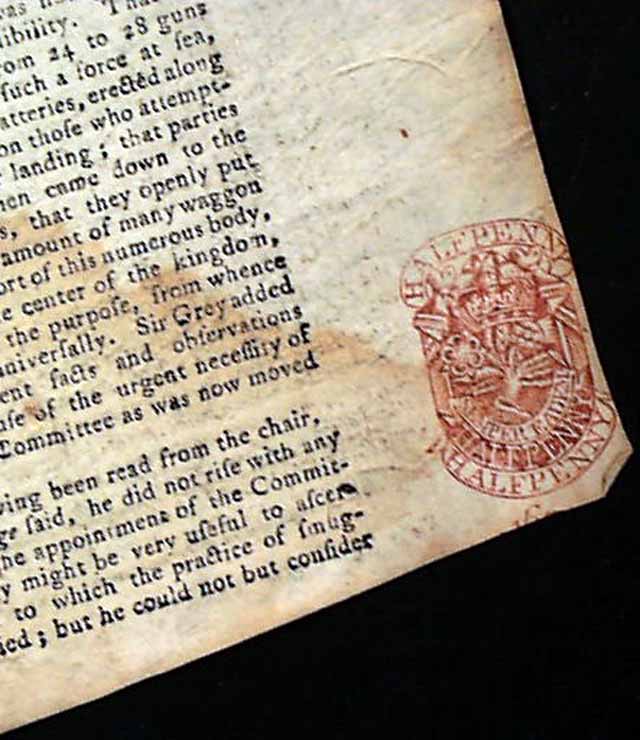 dibility.
from 24 to 28 guns
ſuch a force at ſea,
batteries, erected along
on thoſe who attempt-
landing; that parties
men came down to the
s, that they openly put
amount of many waggon
ort of this numerous body,
e center of the kingdom,
the purpoſe, from whence
univerſally. Sir Grey added
ent facts and obſervations
uſe of the urgent neceſſity of
Committee as was now moved
ving been read from the chair,
ge ſaid, he did not riſe with any
he appointment of the Commit-
y might be very uſeful to aſcer-
to which the practice of ſmug-
ied; but he could not but conſider
HALFPENNY
SEMPER EADEM
HALFPENNY
HALFPENNY